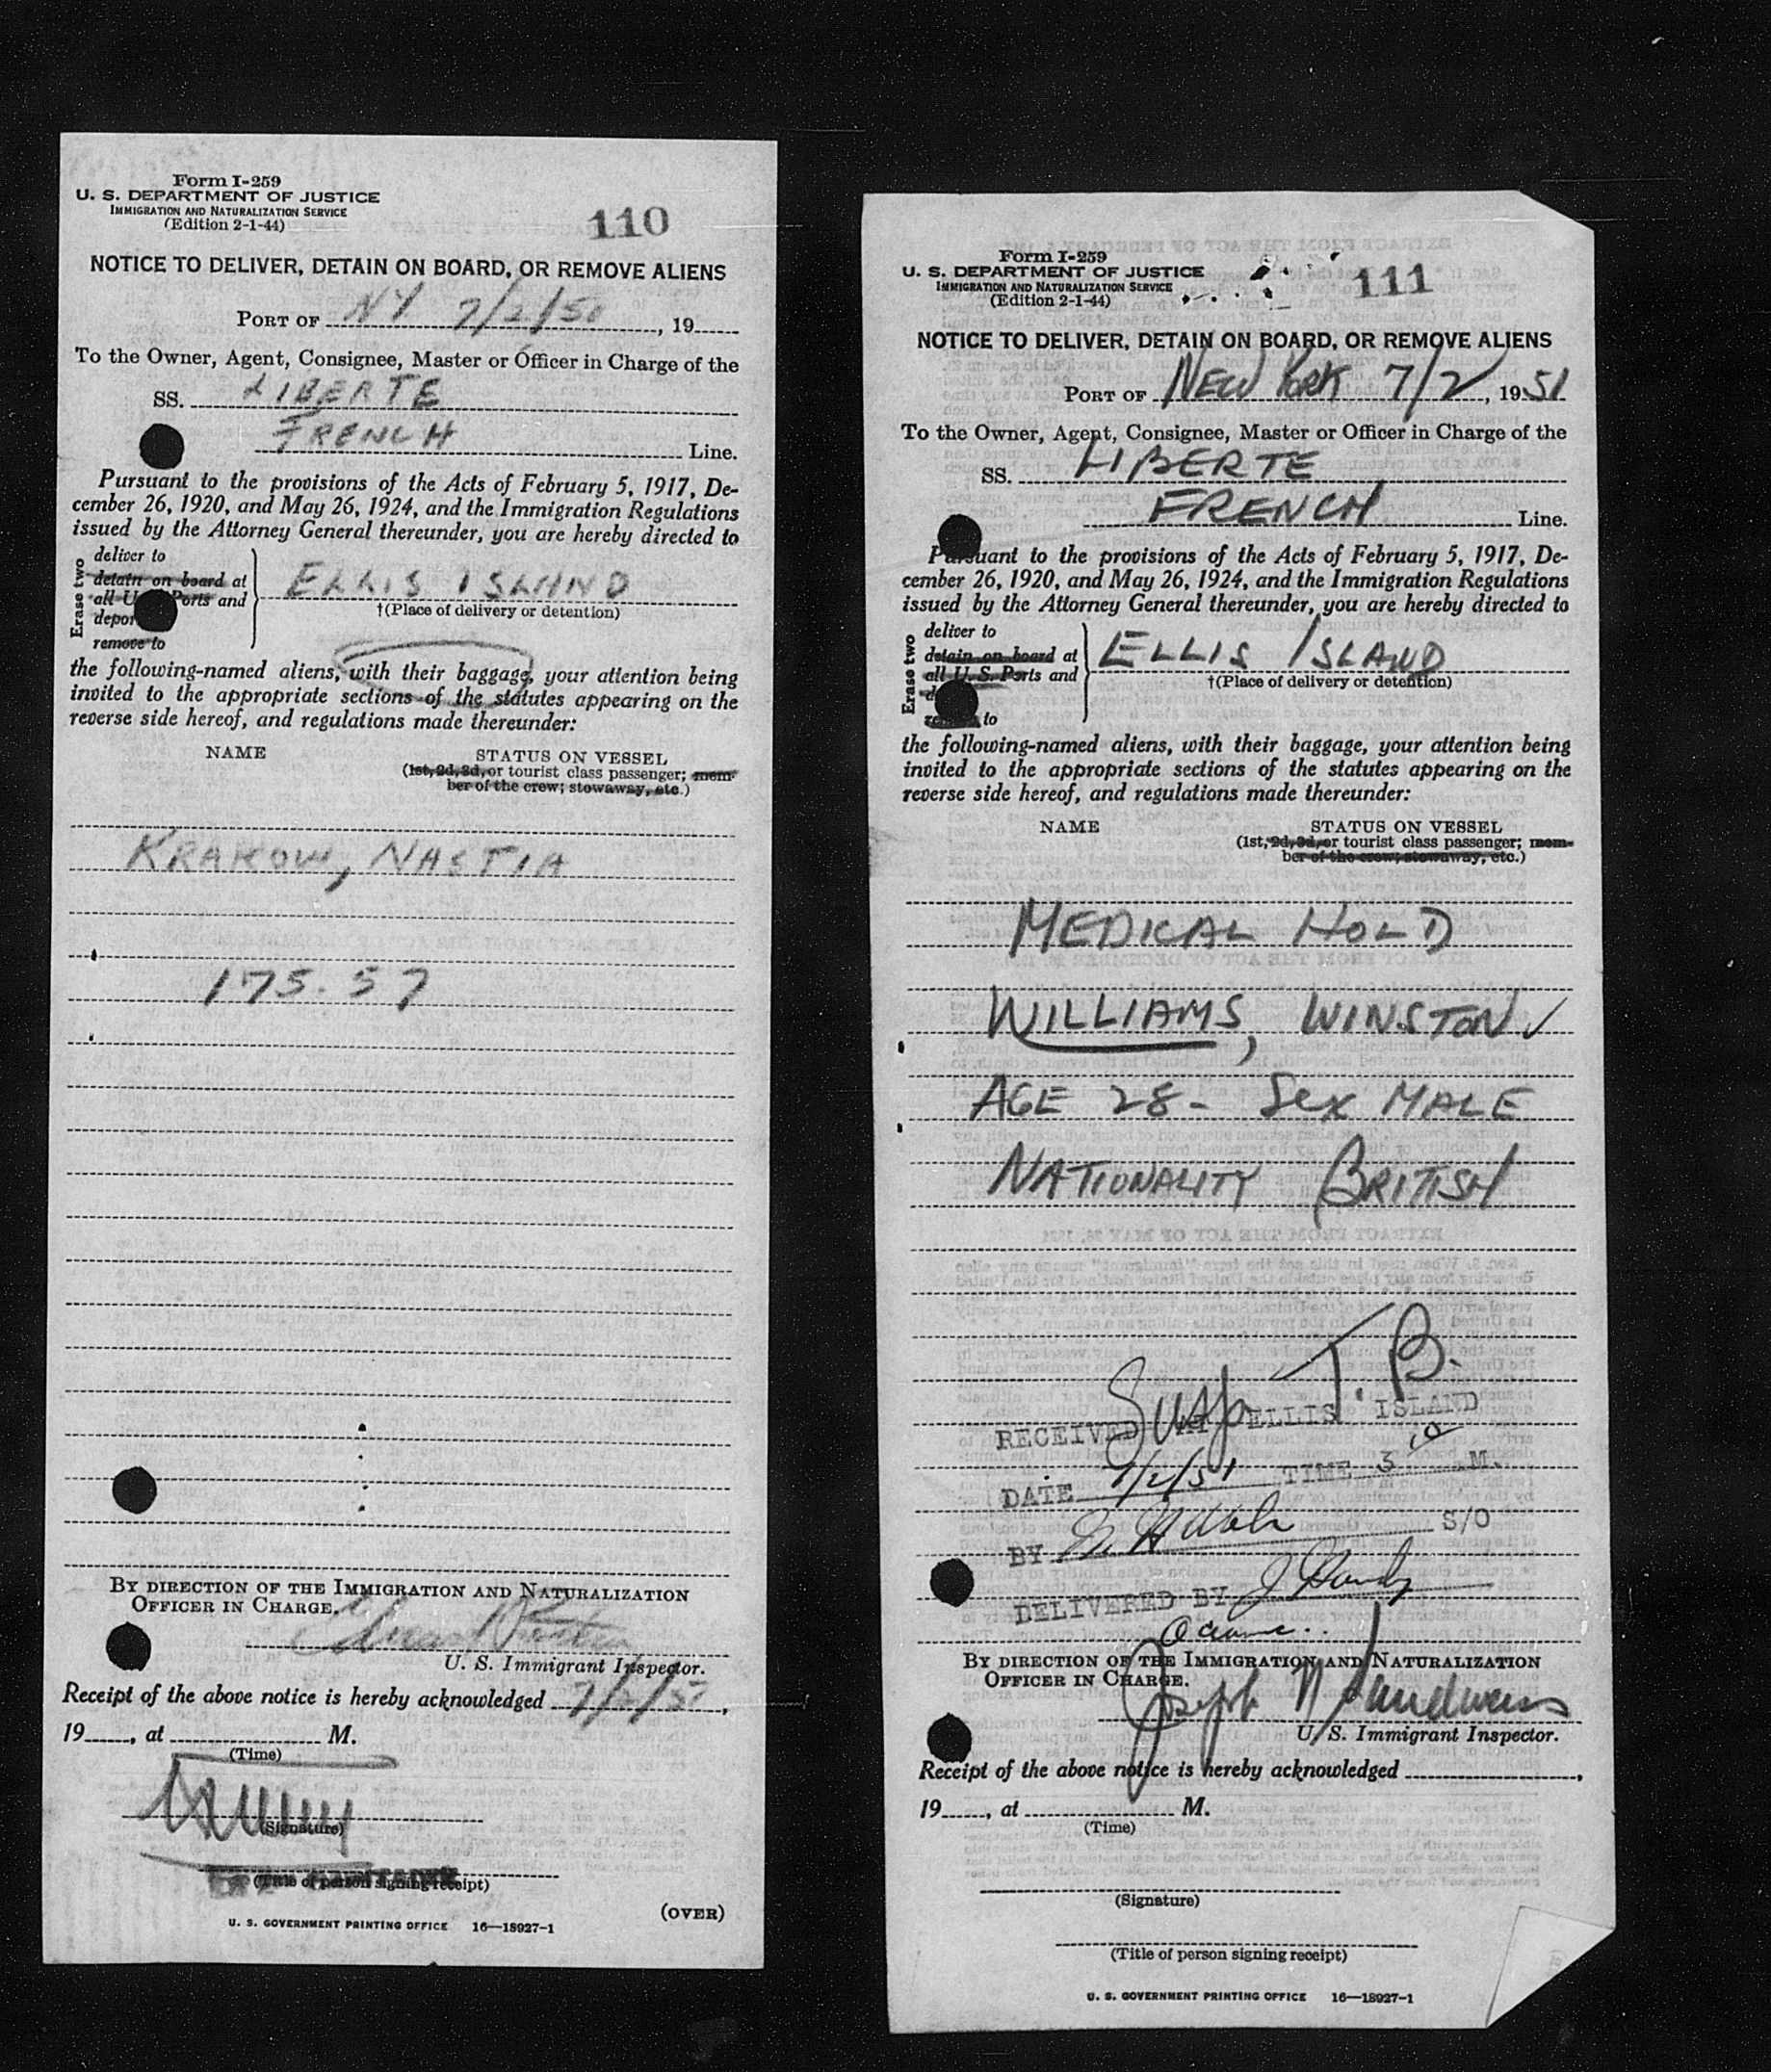 Form I-259
U. S. DEPARTMENT OF JUSTICE
IMMIGRATION AND NATURALIZATION SERVICE
(Edition 2-1-44)
110
NOTICE TO DELIVER, DETAIN ON BOARD, OR REMOVE ALIENS
PORT OF NY 7/2/50, 19
To the Owner, Agent, Consignee, Master or Officer in Charge of the
SS. LIBERTE
FRENCH Line.
Pursuant to the provisions of the Acts of February 5, 1917, De-
cember 26, 1920, and May 26, 1924, and the Immigration Regulations
issued by the Attorney General thereunder, you are hereby directed to
Erase two
deliver to
detain on board at
all U. Ports and
depor
remove to
ELLIS ISLAND
†(Place of delivery or detention)
the following-named aliens, with their baggage, your attention being
invited to the appropriate sections of the statutes appearing on the
reverse side hereof, and regulations made thereunder:
NAME STATUS ON VESSEL
(1st, 2d, 3d, or tourist class passenger; mem-
ber of the crew; stowaway, etc.)
KRAKOW, NASTIA
175.57
BY DIRECTION OF THE IMMIGRATION AND NATURALIZATION
OFFICER IN CHARGE.
U. S. Immigrant Inspector.
Receipt of the above notice is hereby acknowledged 7/2/51,
19, at M.
(Time)
(Signature)
(Title of person signing receipt)
(OVER)
U. S. GOVERNMENT PRINTING OFFICE 16—18927-1
Form I-259
U. S. DEPARTMENT OF JUSTICE
IMMIGRATION AND NATURALIZATION SERVICE
(Edition 2-1-44)
111
NOTICE TO DELIVER, DETAIN ON BOARD, OR REMOVE ALIENS
PORT OF NEW YORK 7/2, 1951
To the Owner, Agent, Consignee, Master or Officer in Charge of the
SS. LIBERTE
FRENCH Line.
Pursuant to the provisions of the Acts of February 5, 1917, De-
cember 26, 1920, and May 26, 1924, and the Immigration Regulations
issued by the Attorney General thereunder, you are hereby directed to
Erase two
deliver to
detain on board at
all U. S. Ports and
to
ELLIS ISLAND
†(Place of delivery or detention)
the following-named aliens, with their baggage, your attention being
invited to the appropriate sections of the statutes appearing on the
reverse side hereof, and regulations made thereunder:
NAME STATUS ON VESSEL
(1st, 2d, 3d, or tourist class passenger; mem-
ber of the crew; stowaway, etc.)
MEDICAL HOLD
WILLIAMS, WINSTON ✓
AGE 28 - SEX MALE
NATIONALITY BRITISH
Susp T.B.
RECEIVED AT ELLIS ISLAND
DATE 7/2/51 TIME 3 10 M.
BY S/O
DELIVERED BY
BY DIRECTION OF THE IMMIGRATION AND NATURALIZATION
OFFICER IN CHARGE.
Joseph
U. S. Immigrant Inspector.
Receipt of the above notice is hereby acknowledged ,
19, at M.
(Time)
(Signature)
(Title of person signing receipt)
U. S. GOVERNMENT PRINTING OFFICE 16—18927-1